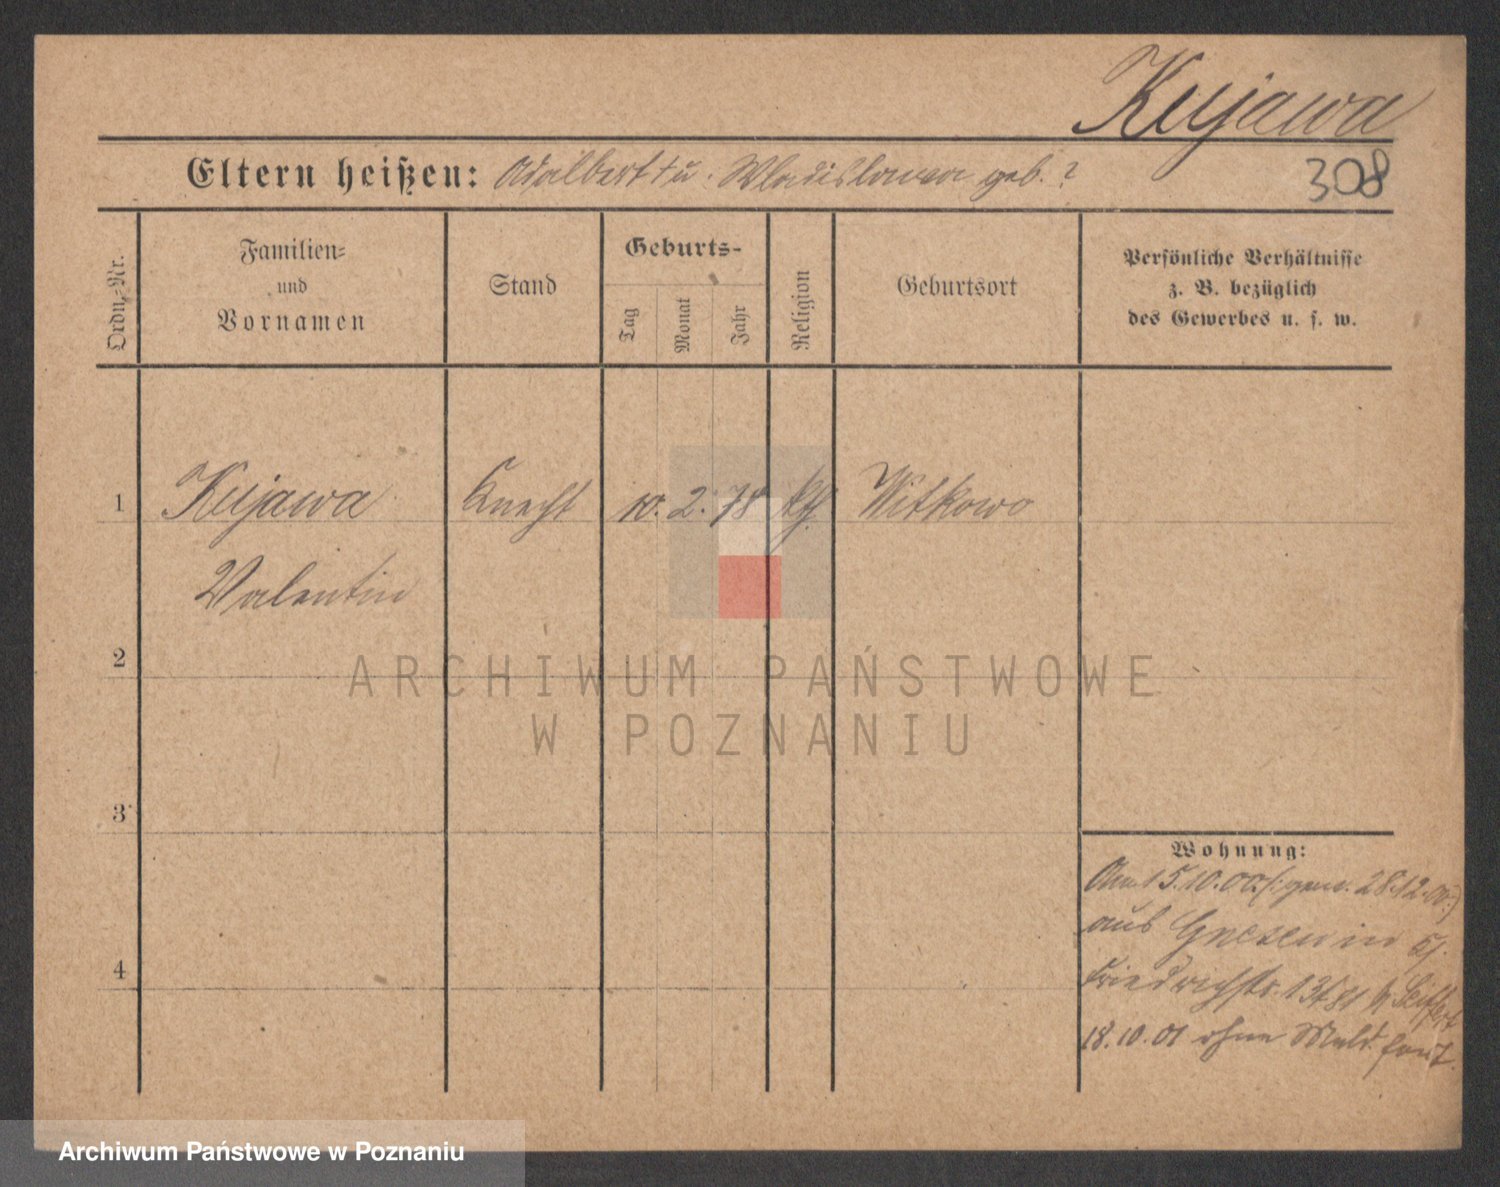 Kujawa
308
Eltern heißen: Adalbert † u. Wladislawa geb. ?
Ordn.-Nr.
Familien-
und
Vornamen
Stand
Geburts-
Tag
Monat
Jahr
Religion
Geburtsort
Persönliche Verhältnisse
z. B. bezüglich
des Gewerbes u. s. w.
1 Kujawa Knecht 10. 2. 78 kth. Witkowo
Valentin
2
3
4
ARCHIWUM PAŃSTWOWE
W POZNANIU
Wohnung:
Am 15.10.00 (: gem. 28.12.00 :)
aus Gnesen in
Friedrichstr. 13 Seiffert
18.10.01 ohne Meld. fort.
Archiwum Państwowe w Poznaniu